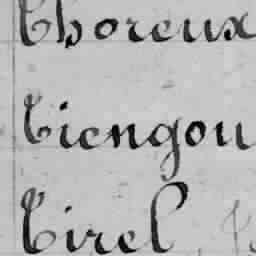 Thoreux
Tiengou
Tirel